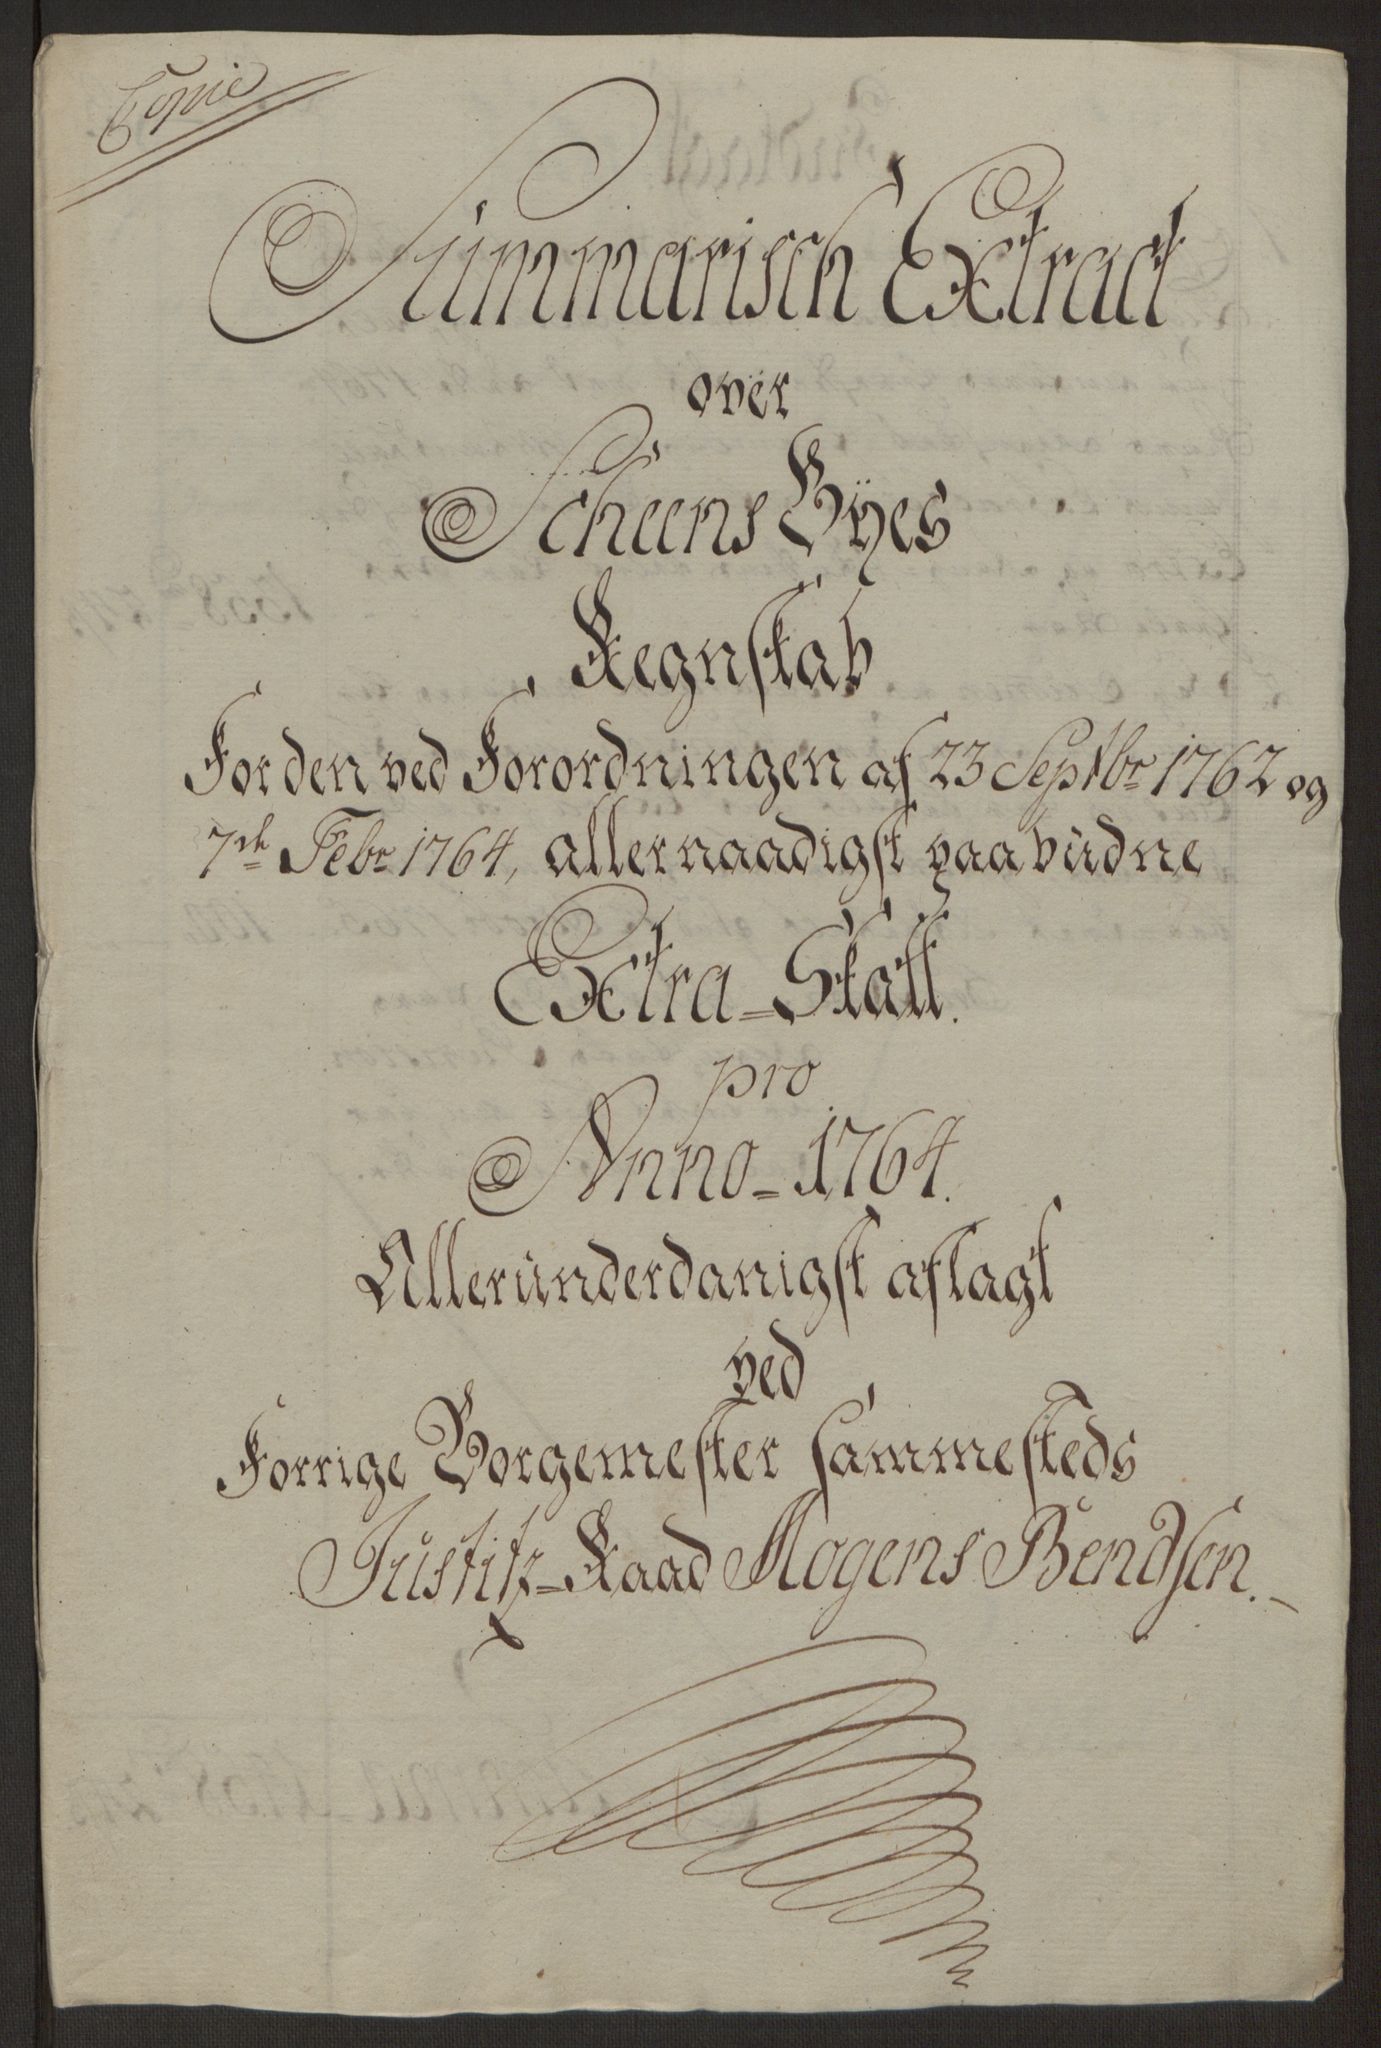 Copie
Summarisch Extract
over
Scheens Byes
Regnskab
For den ved Forordningen af 23 Septbr 1762 og
7de Febr 1764, allernaadigst paabüdne
Extra-Skatt.
pro
Anno-1764.
Alleründerdanigst aflagt
ved
Forrige Borgemester sammesteds
Justitz-Raad Mogens Bendsen.